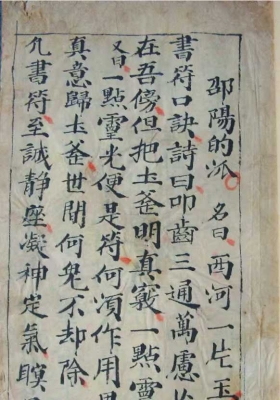 邵陽的派 名曰西河一片玉
書符口訣詩曰叩齒三通萬慮
在吾傍但把圡釜明真竅一點靈
又曰一點靈光便是符何須作用
真意歸圡釜世間何鬼不却除
凢書符至誠静座凝神定氣瞑